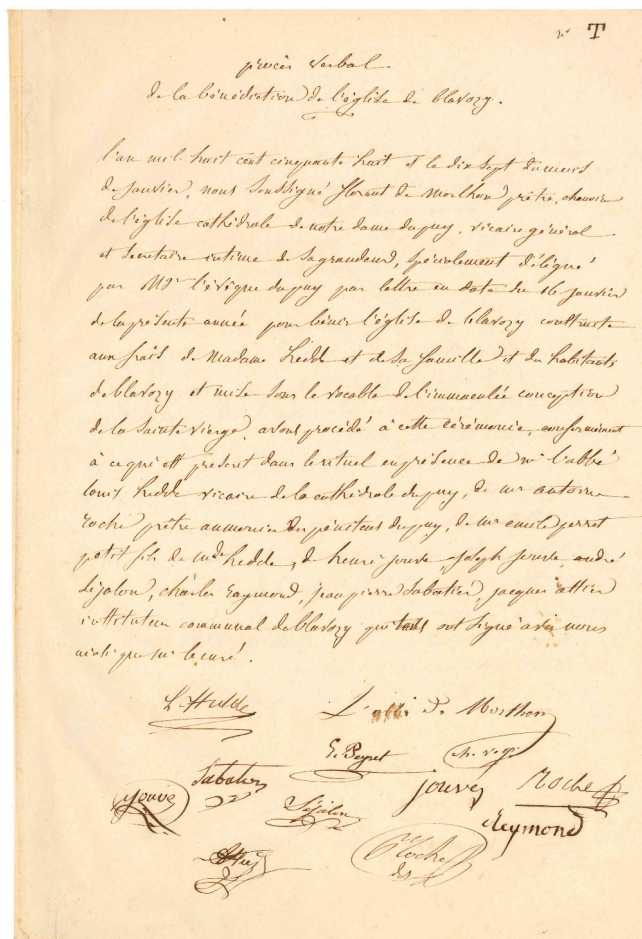 nº T
procès verbal
de la bénédiction de l'église de blavozy.
l'an mil huit cent cinquante huit et le dix sept du mois
de janvier, nous soussigné florent de morlhon prêtre, chanoine
de l'église cathédrale de notre dame du puy, vicaire général
et secrétaire intime de sa grandeur, spécialement délégué
par Mgr l'évêque du puy par lettre en date du 16 janvier
de la présente année pour bénir l'église de blavozy construite
aux frais de Madame hedde et de sa famille et des habitants
de blavozy et mise sous le vocable de l'immaculée conception
de la Sainte vierge, avons procédé à cette cérémonie, conformément
à ce qui est prescrit dans le rituel en présence de mr l'abbé
louis hedde vicaire de la cathédrale du puy, de mr antoine
roche prêtre aumonier des pénitens du puy, de mr emile perret
petit fils de mde hedde, de henri jouve, joseph jouve, andré
Séjalon, charles raymond, jean pierre Sabatier, jacques
instituteur communal de blavozy qui tous ont signé avec nous
ainsi que mr le curé.
L. Hedde
L'abbé De Morlhon
E. Peyret
Sabatier
jouve
Roche
jouve
Séjalon
Reymond
Roche